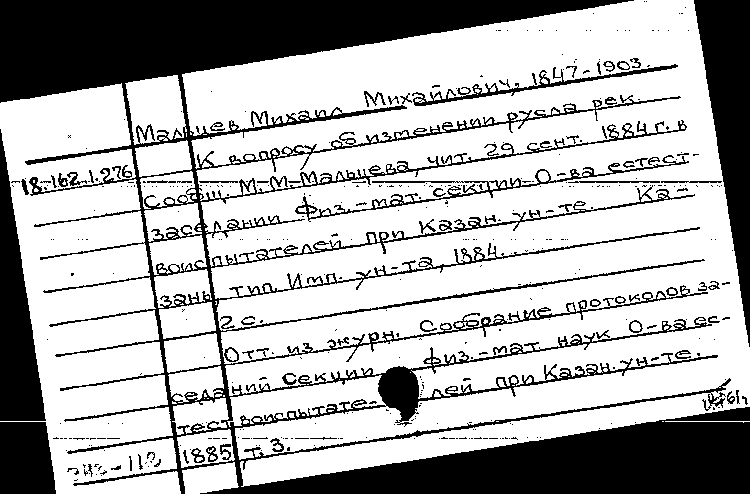 Мальцев, Михаил Михайлович, 1847-1903.
К вопросу об изменении русла рек.
18.162.1.276
Сообщ. М. М. Мальцева, чит. 29 сент. 1884 г. в
заседании Физ.-мат. секции О-ва естест-
воиспытателей при Казан. ун-те. Ка-
зань, тип. Имп. ун-та, 1884.
2 с.
Отт. из журн. Собрание протоколов за-
седаний Секции физ.-мат. наук О-ва ес-
тествоиспытателей при Казан. ун-те.
1885, т. 3.